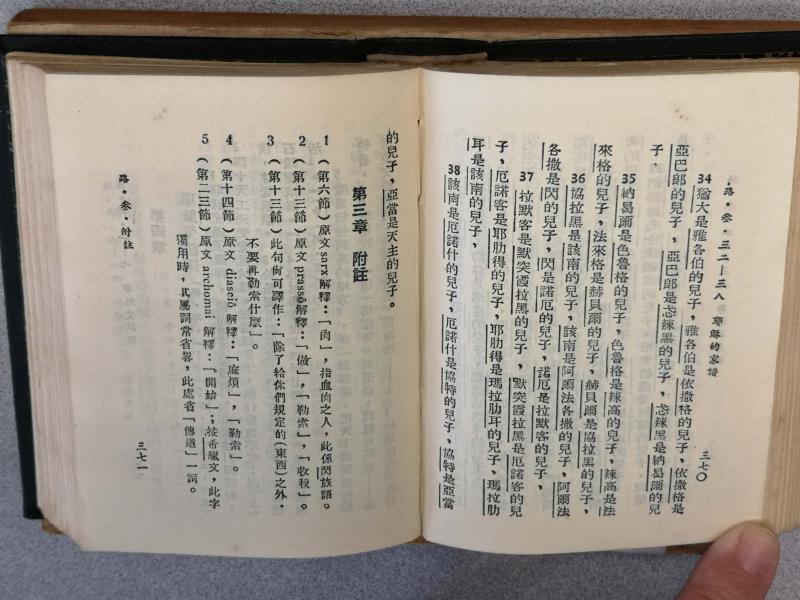 路·叁·三二—三八 耶穌的家譜 三七〇
34 猶大是雅各伯的兒子，雅各伯是依撒格的兒子，依撒格是
亞巴郎的兒子，亞巴郎是忒辣黑的兒子，忒辣黑是納曷爾的兒
子，
35 納曷爾是色魯格的兒子，色魯格是辣高的兒子，辣高是法
來格的兒子，法來格是赫貝爾的兒子，赫貝爾是協拉黑的兒子，
36 協拉黑是該南的兒子，該南是阿爾法各撒的兒子，阿爾法
各撒是閃的兒子，閃是諾厄的兒子，諾厄是拉默客的兒子，
37 拉默客是默突霞拉黑的兒子，默突霞拉黑是厄諾客的兒
子，厄諾客是耶肋得的兒子，耶肋得是瑪拉肋耳的兒子，瑪拉肋
耳是該南的兒子，
38 該南是厄諾什的兒子，厄諾什是協特的兒子，協特是亞當
的兒子，亞當是天主的兒子。
第三章 附註
1 （第六節）原文 sarx 解釋：「肉」，指血肉之人，此係閃族語。
2 （第十三節）原文 prassō 解釋：「做」，「勒索」，「收稅」。
3 （第十三節）此句尙可譯作：「除了給你們規定的（東西）之外，
不要再勒索什麼」。
4 （第十四節）原文 diaseiō 解釋：「麻煩」，「勒索」。
5 （第二三節）原文 archomai 解釋：「開始」；按希臘文，此字
獨用時，其屬詞常省畧，此處省「傳道」一詞。
路·叁·附註 三七一